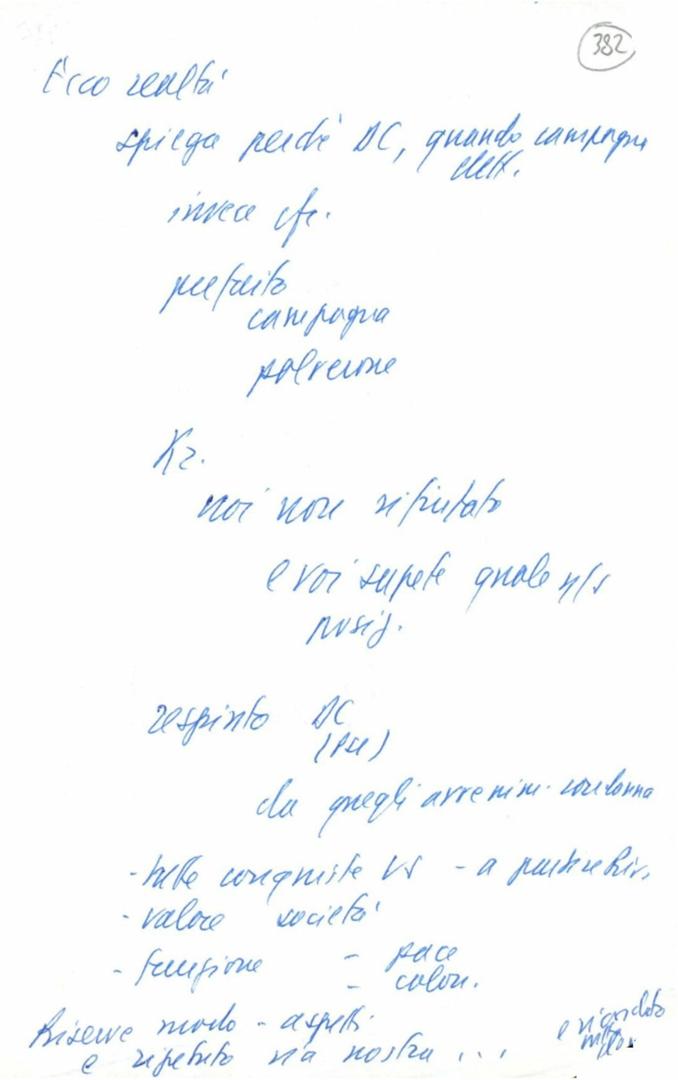 382
Ecco realtà
spiega perché DC, quando campagna
elett.
invece cfr.
preferito
campagna
polverone
Kr.
noi non rifiutato
e voi sapete quale n/s
posiz.
respinto DC
(PSI)
da quegli avvenim. condanna
- tutte conquiste US - a partire Riv.
- valore società
- funzione - pace
- colon.
Riserve modo - aspetti
e ripetuto via nostra ...
e ricordato